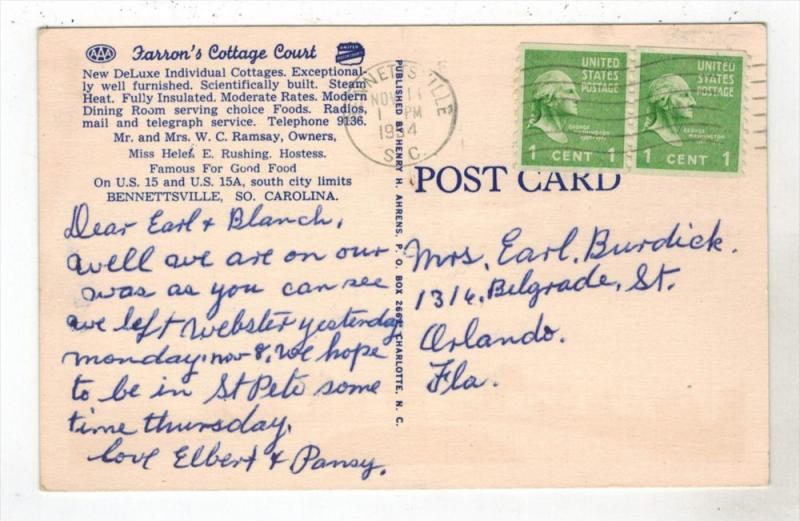 AAA Farron's Cottage Court
New DeLuxe Individual Cottages. Exceptional-
ly well furnished. Scientifically built. Steam
Heat. Fully Insulated. Moderate Rates. Modern
Dining Room serving choice Foods. Radios,
mail and telegraph service. Telephone 9136.
Mr. and Mrs. W. C. Ramsay, Owners,
Miss Helen E. Rushing. Hostess.
Famous For Good Food
On U.S. 15 and U.S. 15A, south city limits
BENNETTSVILLE, SO. CAROLINA.
Dear Earl & Blanch,
well we are on our
was as you can see
we left Webster yesterday
monday. nov 8, We hope
to be in St Pete some
time thursday.
Love Elbert & Pansy.
PUBLISHED BY HENRY H. AHRENS, P. O. BOX 2661, CHARLOTTE, N. C.
BENNETTSVILLE
NOV 11
1 PM
1954
S.C.
UNITED
STATES
POSTAGE
GEORGE
WASHINGTON
1 CENT 1
UNITED
STATES
POSTAGE
GEORGE
WASHINGTON
1 CENT 1
POST CARD
Mrs. Earl Burdick.
1316, Belgrade, St.
Orlando.
Fla.